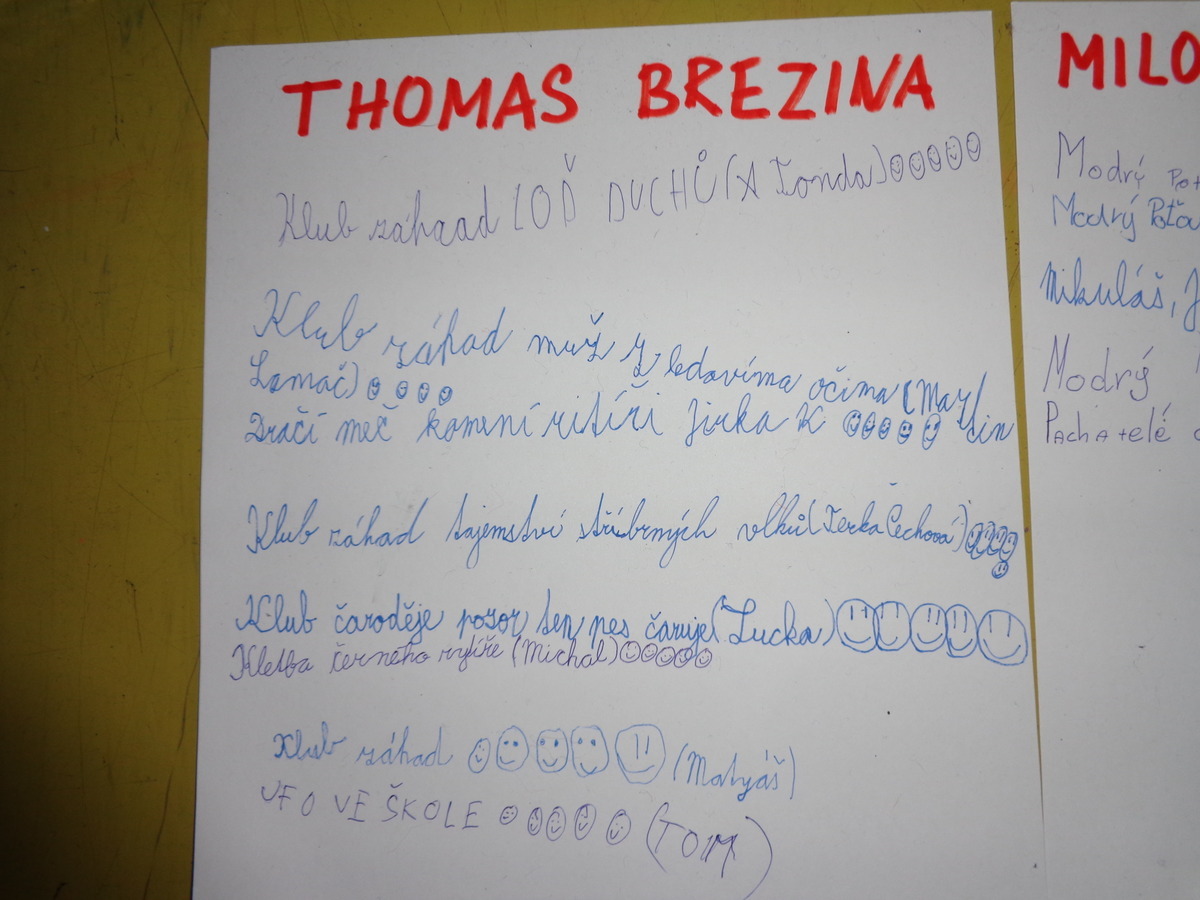 THOMAS BREZINA
Klub záhaad LOĎ DUCHŮ (A Tonda)
Klub záhad muž z ledovíma očima (Mar/tin
Lamač)
Dračí meč kamení ritíři Jirka K
Klub záhad tajemství stříbrných vlků (Terka Čechová)
Klub čaroděje pozor ten pes čaruje (Lucka)
Kletba černého rytíře (Michal)
Klub záhad (Matyáš)
UFO VE ŠKOLE (TOM)
MILO
Modrý Pot
Modrý Poťa
Mikuláš, J
Modrý
Pachatelé